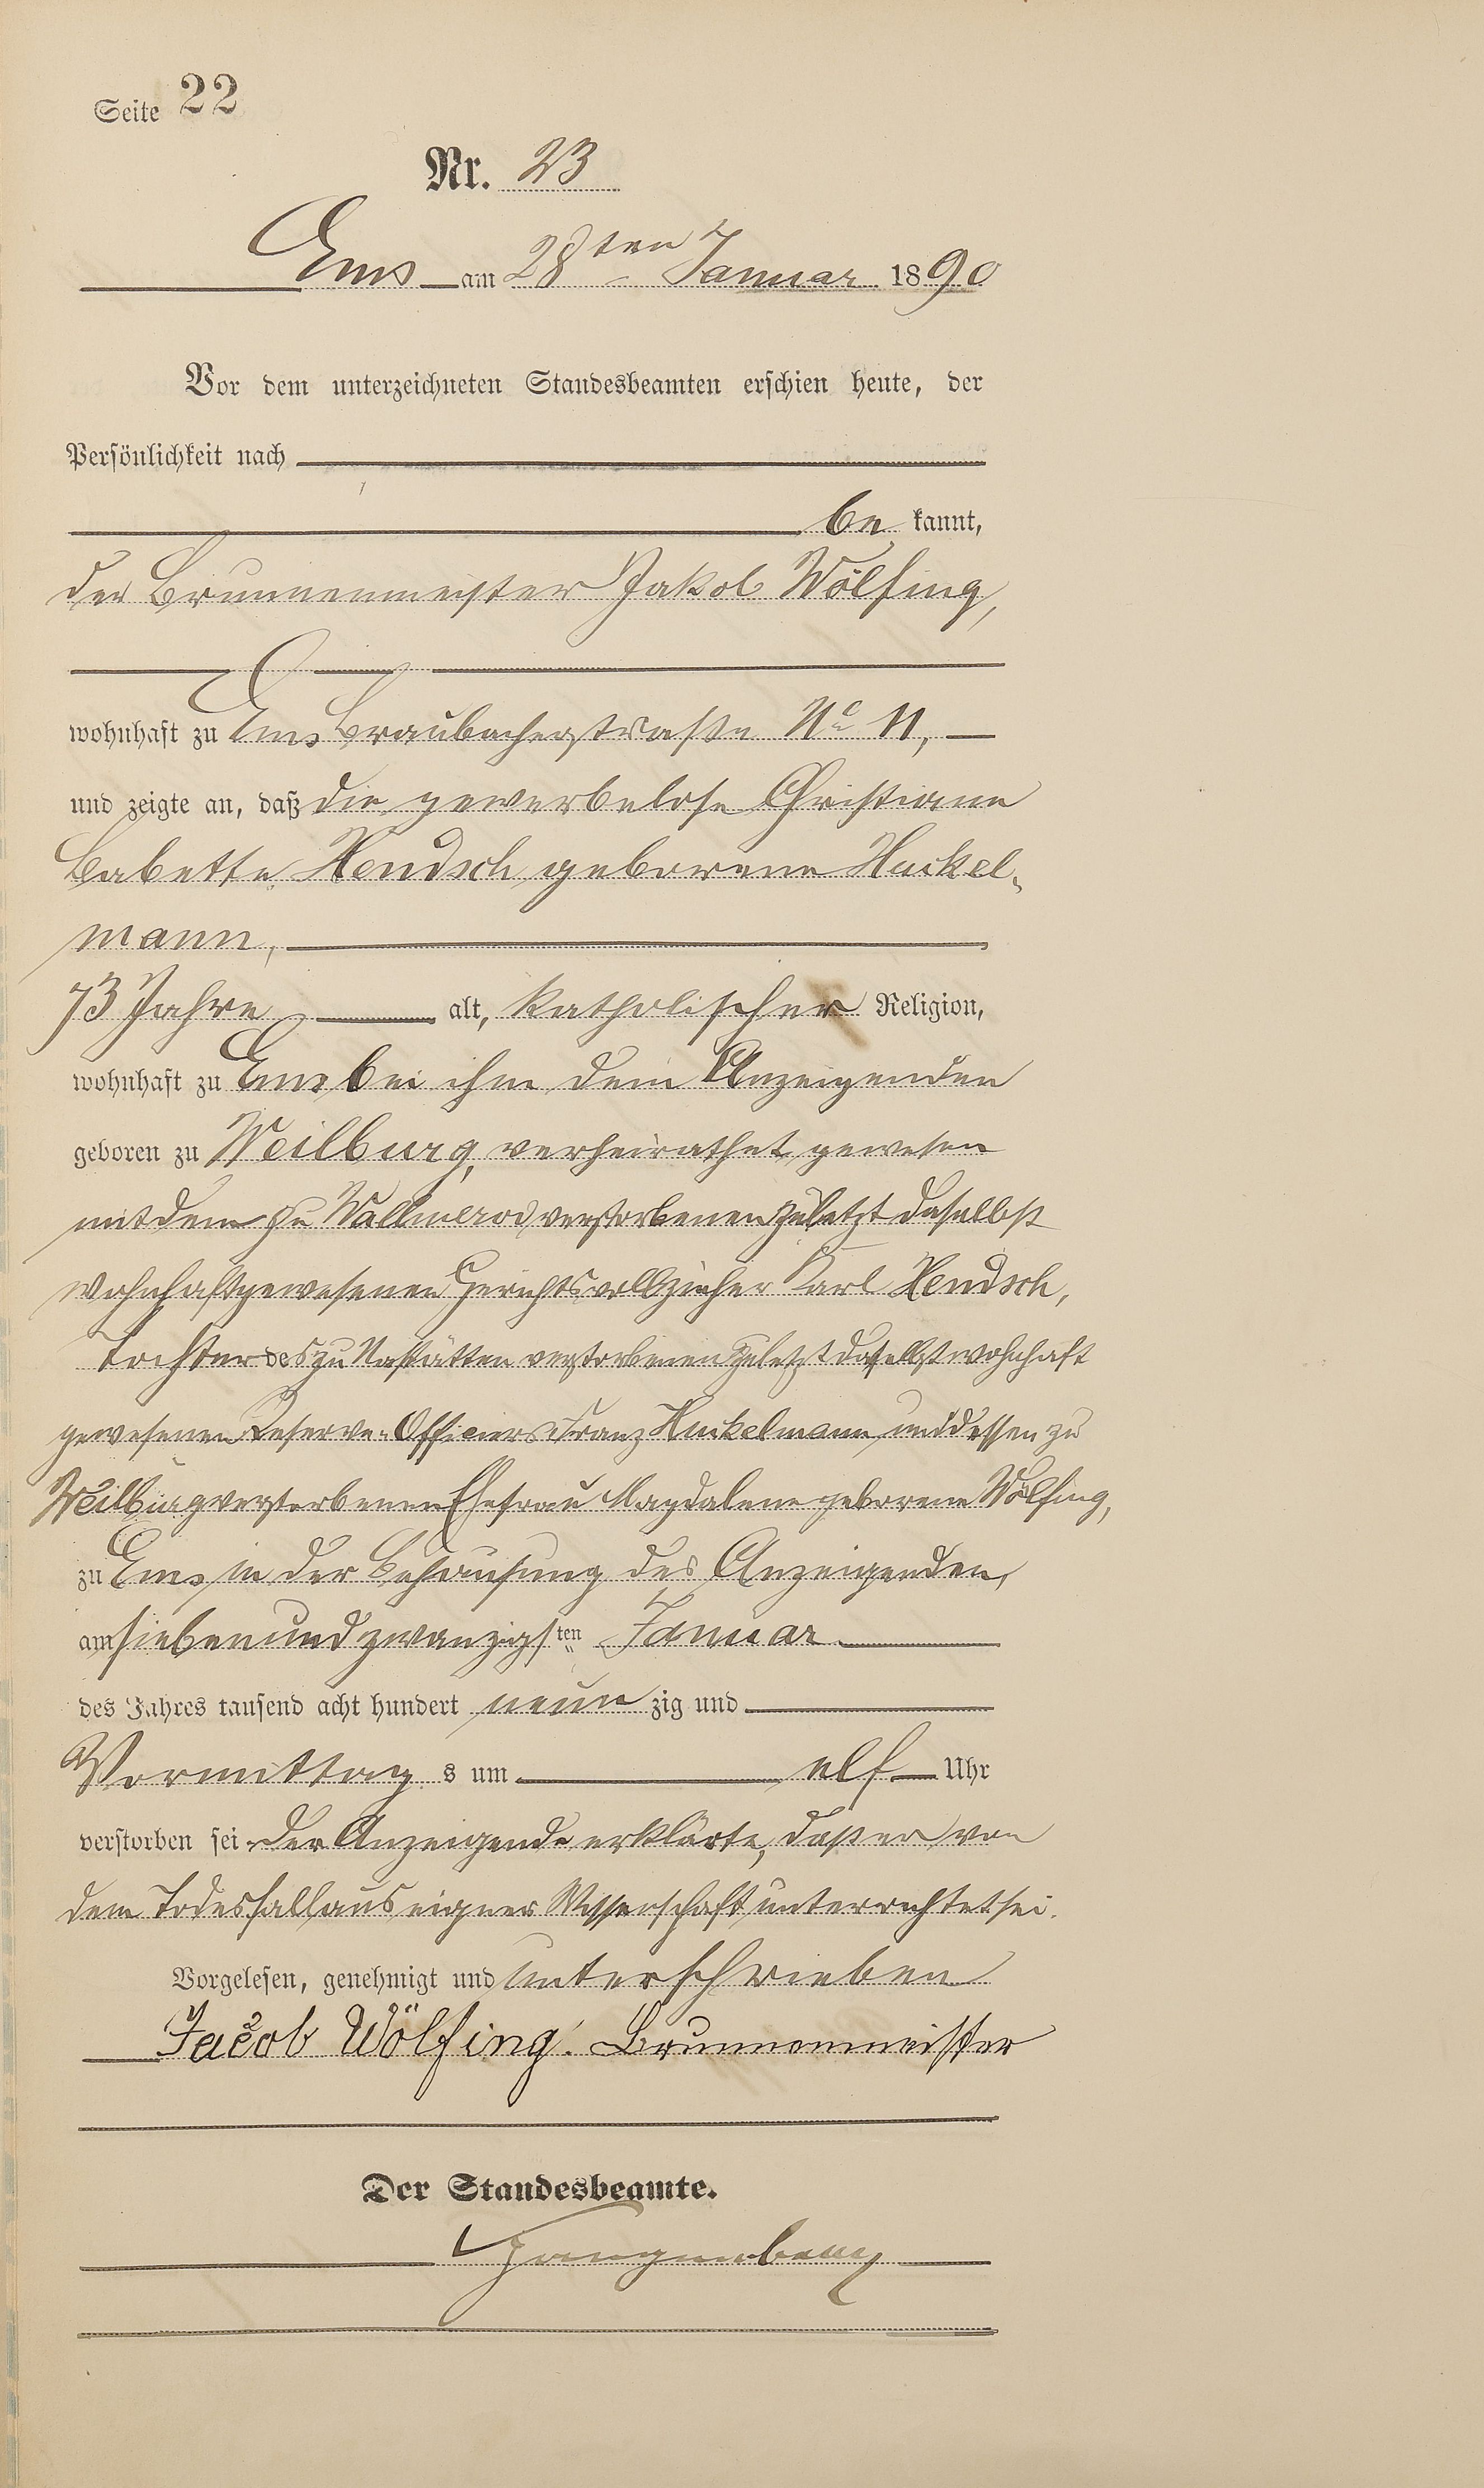 Seite 22
Nr. 23
Ems am 28ten Januar 1890
Vor dem unterzeichneten Standesbeamten erschien heute, der
Persönlichkeit nach
be kannt,
der Brunnenmeister Jakob Wölfing,
wohnhaft zu Ems Braubacherstraße No 11,
und zeigte an, daß die gewerbelose Christiane
Babette Hendsch geborene Huckel-
mann,
73 Jahre alt, katholischer Religion,
wohnhaft zu Ems bei ihm dem Anzeigenden
geboren zu Weilburg, verheirathet gewesen
mit dem zu Wallmerod verstorbenen zuletzt daselbst
wohnhaft gewesenen Gerichtsvollzieher Karl Hendsch,
Tochter des zu Nastätten verstorbenen zuletzt daselbst wohnhaft
gewesenen Reserve-Officiers Franz Huckelmann und dessen zu
Weilburg verstorbenen Ehefrau Magdalene geborene Wölfing,
zu Ems in der Behausung des Anzeigenden,
am siebenundzwanzigsten Januar
des Jahres tausend acht hundert neun zig und
Vormittag s um elf Uhr
verstorben sei. Der Anzeigende erklärte, daß er von
dem Todesfall aus eigner Wissenschaft unterrichtet sei.
Vorgelesen, genehmigt und unterschrieben
Jacob Wölfing. Brunnenmeister
Der Standesbeamte.